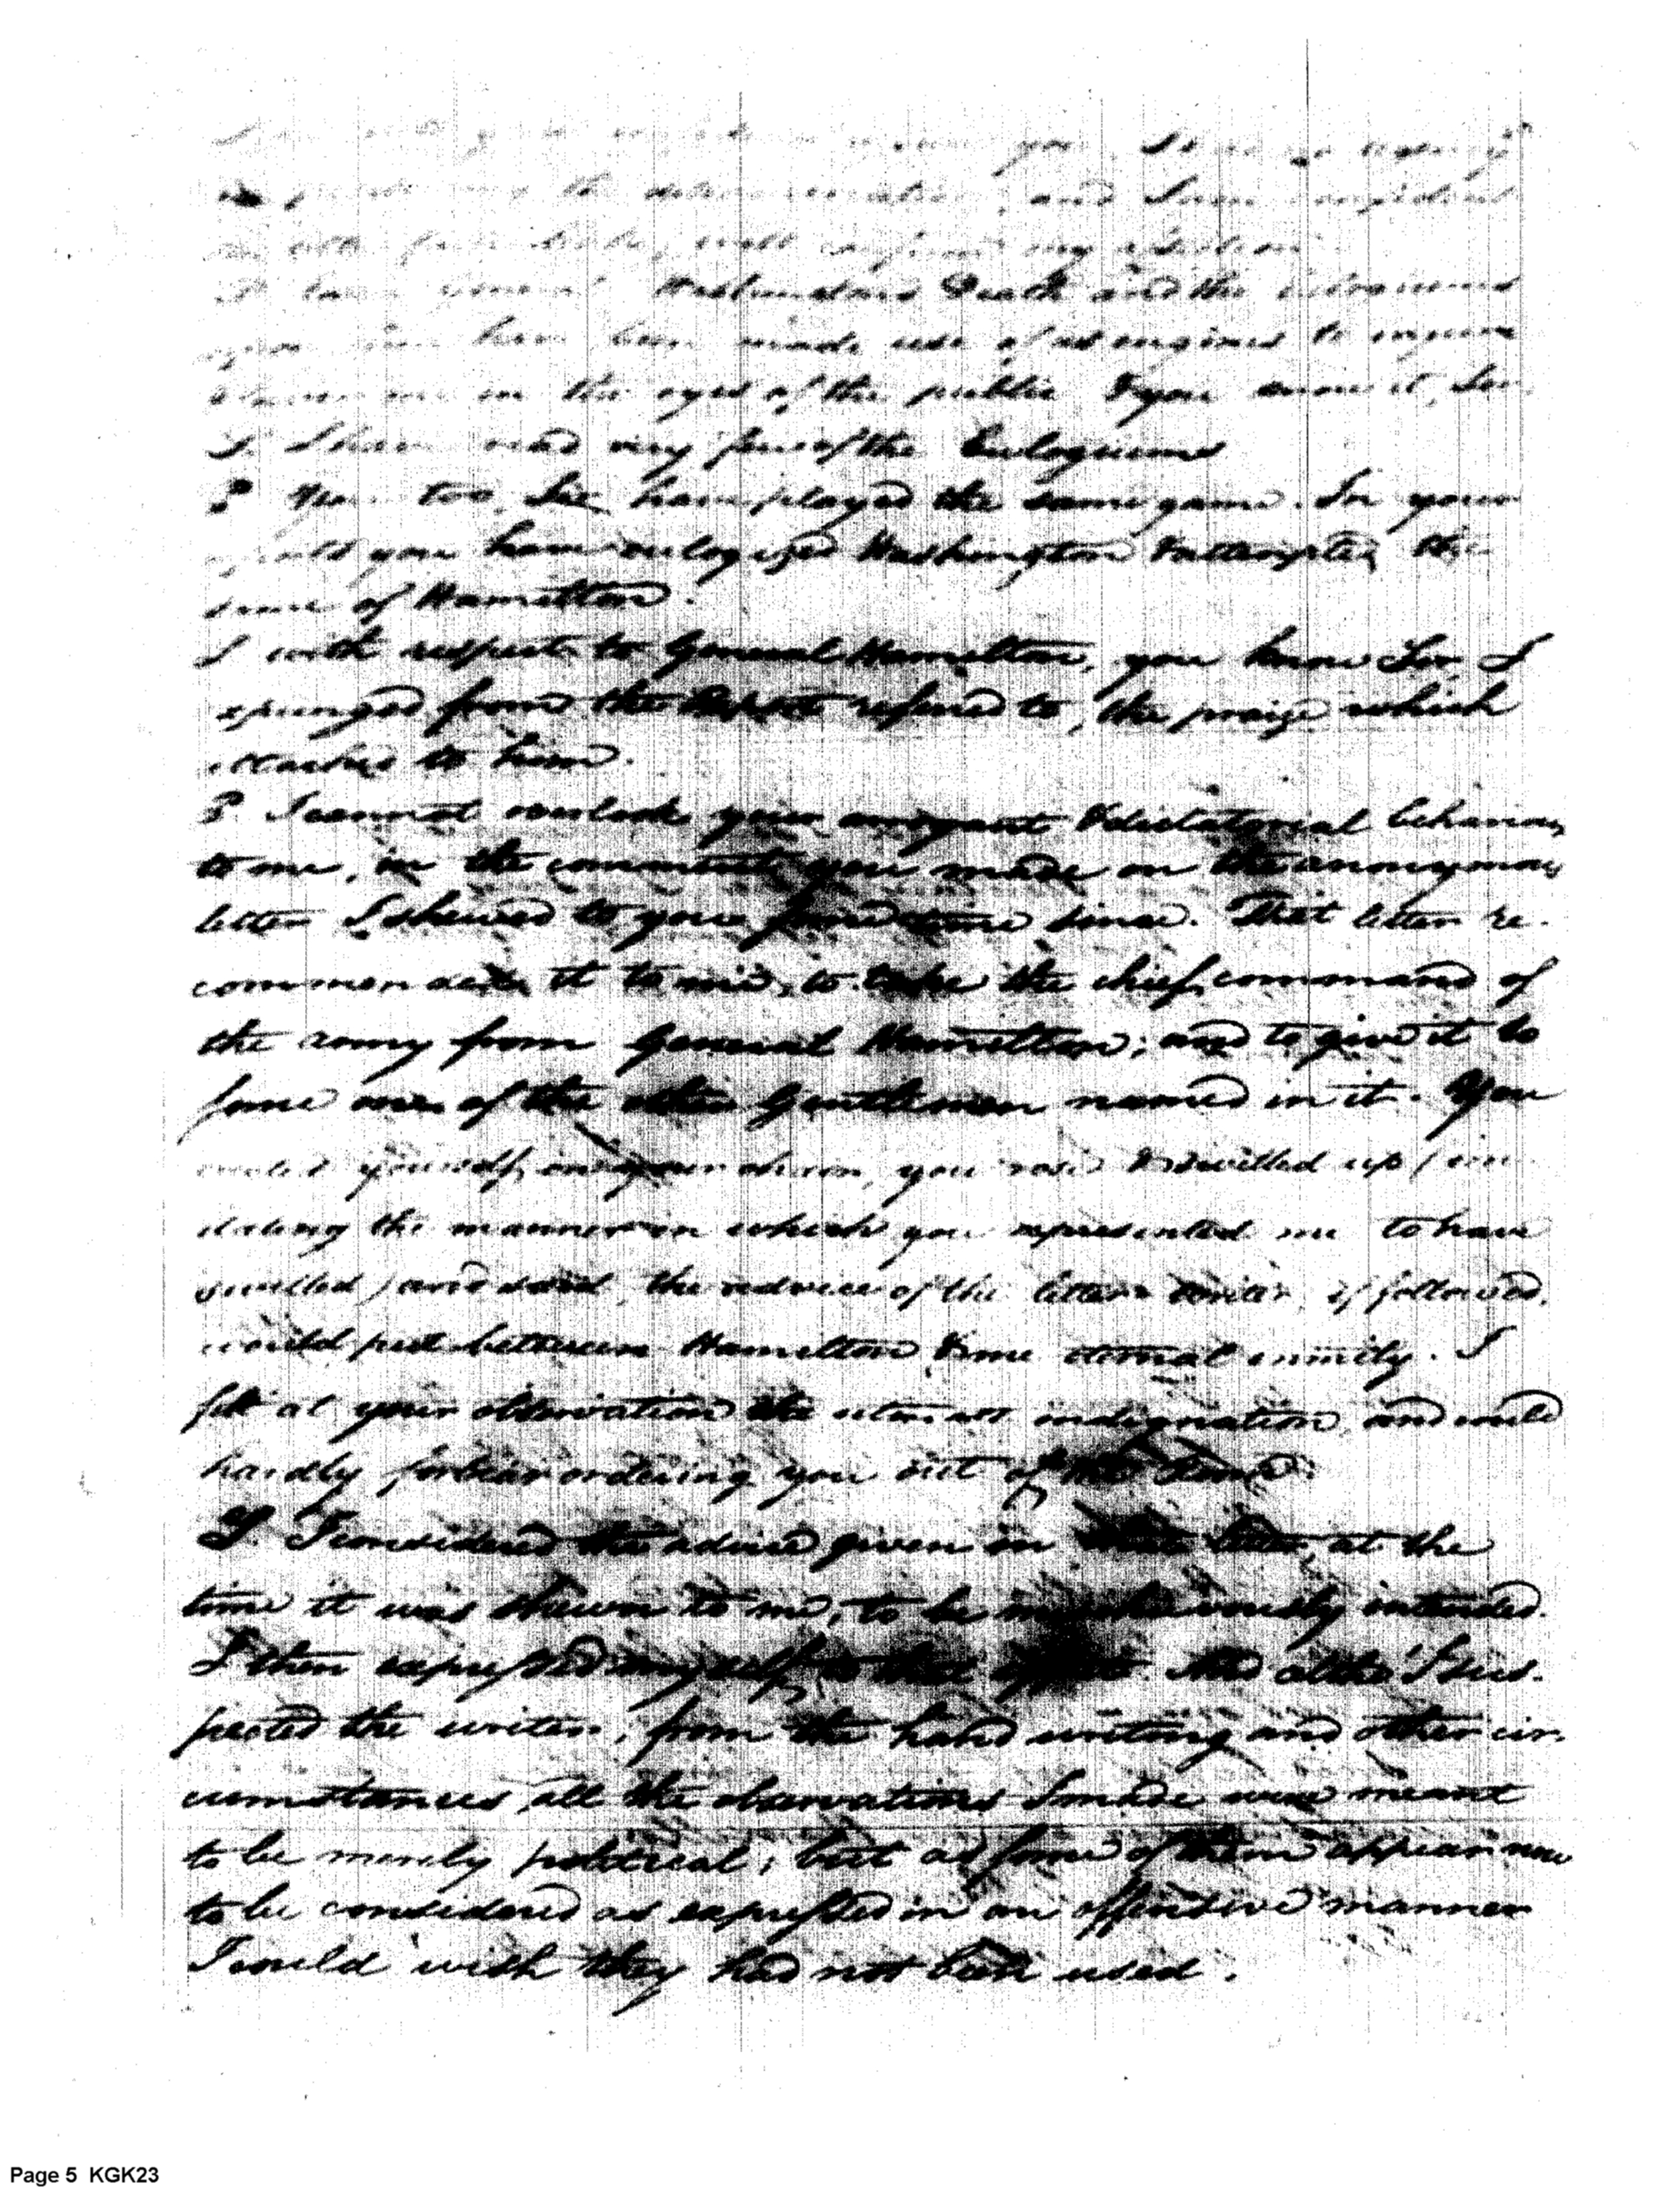 you
the determination, and I am confident
will confirm my
Washingtons Death and the
have been made use of as engines to injure
me in the eyes of the public & you know it, Sir
S. I have read very few of the Eulogiums
P You too, Sir have played the same game. In your
you have eulogized Washington & attempted the
same of Hamilton.
S with respect to General Hamilton, you know Sir, I
expunged from the refered to, the praise which
attached to him.
P. I cannot overlook your arrogant & dictatorial behaviour
to me, in the comment you made on the anonymous
letter I shewed to you some time since. That letter re-
commended it to me, to take the chief command of
the army from General Hamilton; and to give it to
some one of the other Gentlemen named in it. You
yourself, in your chair, you rose & swilled up (im
itating the manner in which you represented me to have
swelled) and said, the advice of the letter writer, if followed,
would put between Hamilton & me eternal enmity. I
felt at your observation the utmost indignation, and could
hardly forbear ordering you out of the Room.
S. I considered the advice given in that letter, at the
time it was shewn to me, to be mischievously intended.
I then expressed myself to that effect. And altho' I sus-
pected the writer, from the hand writing and other cir-
cumstances, all the observations I made were meant
to be merely political; but as some of them appear now
to be considered as expressed in an offensive manner
I would wish they had not been used.
Page 5 KGK23